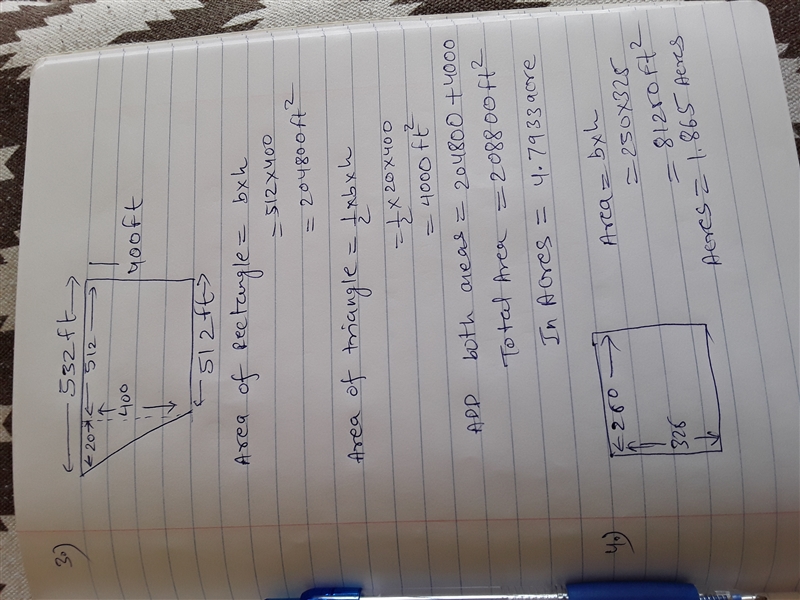 3.)
532ft
20 512
400
400ft
512ft
Area of rectangle = bxh
= 512 x 400
= 204800ft²
Area of triangle = 1/2 xbxh
= 1/2 x 20 x 400
= 4000ft²
ADD both areas = 204800 + 4000
Total Area = 208800ft²
In Acres = 4.7933 acre
4.)
250
325
Area = bxh
= 250x325
= 81250ft²
Acres = 1.865 Acres